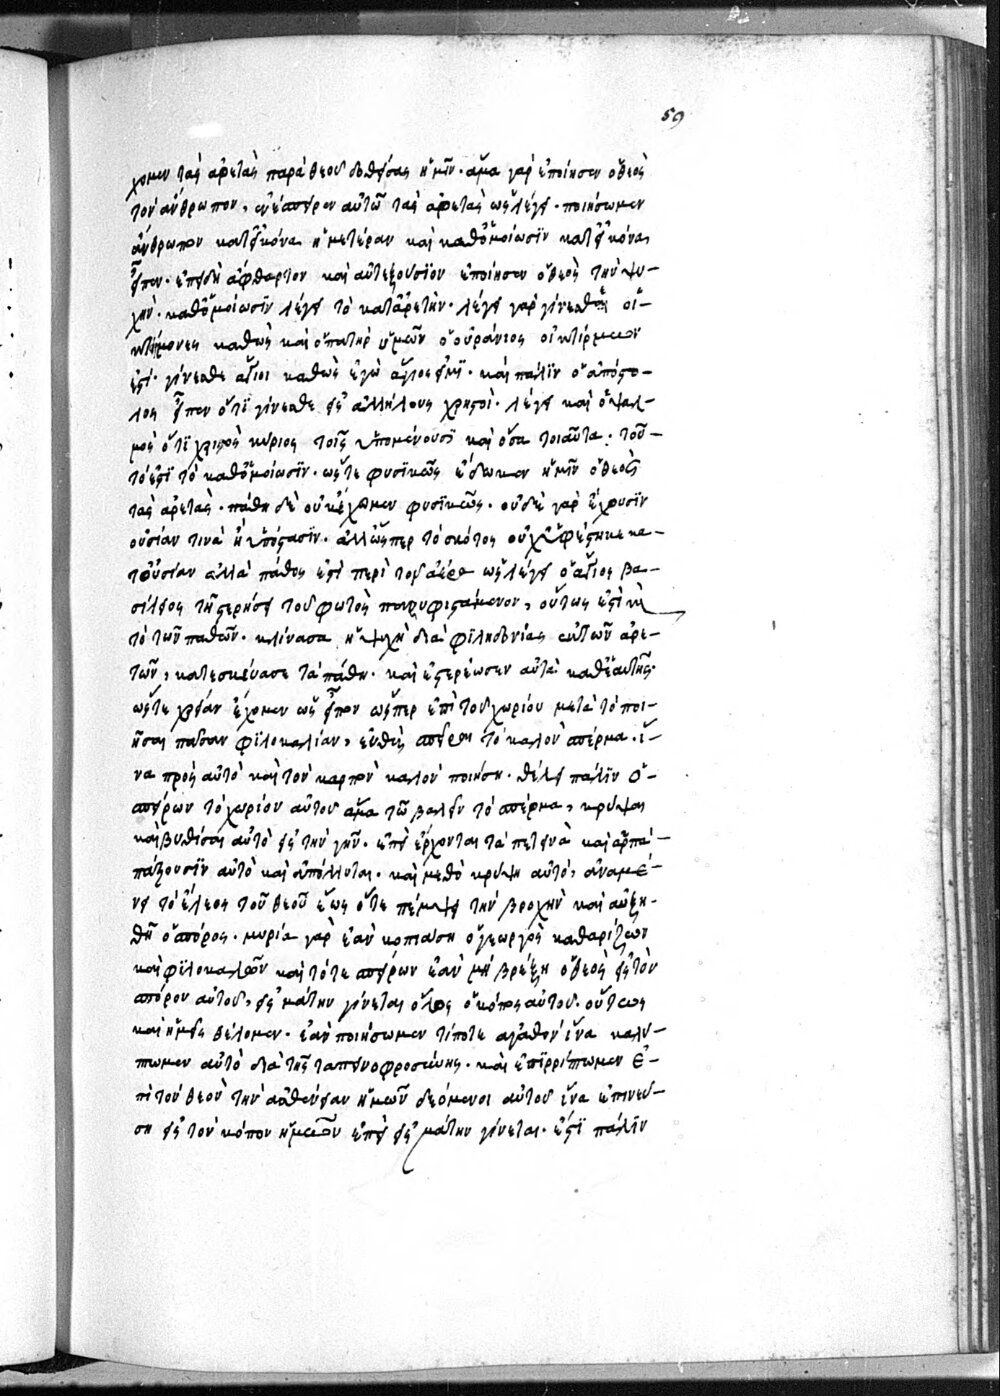 59
χομεν τὰς ἀρετὰς παρὰ θεοῦ δοθείσας ἡμῖν· ἅμα γὰρ ἐποίησεν ὁ θεὸς
τὸν ἄνθρωπον, ἐνέσπειρεν αὐτῶ τὰς ἀρετὰς ὡς λέγει· ποιήσωμεν
ἄνθρωπον κατ' εἰκόνα ἡμετέραν καὶ καθ' ὁμοίωσϊν κατ' εἰκόνα
εἶπεν· ἐπειδὴ ἄφθαρτον καὶ αὐτεξούσϊον ἐποίησεν ὁ θεὸς τὴν ψυ-
χὴν· καθ' ὁμοίωσϊν λέγει τὸ κατ' ἀρετὴν· λέγει γὰρ γίνεσθε οἰ-
κτίρμονες καθὼς καὶ ὁ πατὴρ ὑμῶν ὁ οὐράνιος οἰκτίρμων
ἐστί· γίνεσθε ἅγιοι καθὼς ἐγὼ ἅγιος εἰμϊ· καὶ πάλϊν ὁ ἀπόστο-
λος εἶπεν ὅτϊ γίνεσθε εἰς ἀλλήλους χρηστοὶ· λέγει καὶ ὁ ψαλ-
μὸς ὅτϊ χρηστὸς κύριος τοῖς ὑπομένουσϊ καὶ ὅσα τοιαῦτα· τοῦ-
τό ἐστϊ τὸ καθ' ὁμοίωσϊν· ὥστε φυσϊκῶς ἔδωκεν ἡμῖν ὁ θεὸς
τὰς ἀρετὰς· πάθη δὲ οὐκ ἔχομεν φυσϊκῶς· οὐδὲ γὰρ ἔχουσϊν
οὐσίαν τινὰ ἢ ὑπόστασϊν· ἀλλ' ὥσπερ τὸ σκότος οὐχ ὑφέστηκε κα-
τ' οὐσίαν ἀλλὰ πάθος ἐστὶ περὶ τὸν ἀέρα ὡς λέγει ὁ ἅγιος βα-
σίλειος τῆ στερήσει τοῦ φωτὸς παρυφιστάμενον, οὕτως ἐστὶ καὶ
τὸ τῶν παθῶν· κλίνασα ἡ ψυχὴ διὰ φϊληδονίας ἐκ τῶν ἀρε-
τῶν, κατεσκεύασε τὰ πάθη· καὶ ἐστερέωσεν αὐτὰ καθ' ἑαυτῆς·
ὥστε χρείαν ἔχομεν ὡς εἶπον ὥσπερ ἐπὶ τοῦ χωρίου μετὰ τὸ ποι-
ῆσαι πᾶσαν φϊλοκαλίαν, εὐθὺς σπεῖραι τὸ καλὸν σπέρμα· ἵ-
να πρὸς αὐτὸ καὶ τὸν καρπὸν καλὸν ποιήση· θέλει πάλϊν ὁ
σπείρων τὸ χωρίον αὐτοῦ ἅμα τῶ βαλεῖν τὸ σπέρμα, κρύψαι
καὶ βυθίσαι αὐτὸ εἰς τὴν γῆν· ἐπεὶ ἔρχονται τὰ πετεινὰ καὶ ἁρπά-
πάζουσϊν αὐτὸ καὶ ἀπόλλυται· καὶ μεθὸ κρύψη αὐτὸ, ἀναμέ-
νει τὸ ἔλεος τοῦ θεοῦ ἕως ὅτε πέμψει τὴν βροχὴν καὶ αὐξη-
θῆ ὁ σπόρος· μυρία γὰρ ἐὰν κοπιάση ὁ γεωργὸς καθαρίζων
καὶ φϊλοκαλῶν καὶ τότε σπείρων ἐὰν μὴ βρέξη ὁ θεὸς εἰς τὸν
σπόρον αὐτοῦ, εἰς μάτην γίνεται ὅλος ὁ κόπος αὐτοῦ· οὕτως
καὶ ἡμεῖς θέλομεν· ἐὰν ποιήσωμεν τίποτε ἀγαθὸν ἵνα καλύ-
πτωμεν αὐτὸ διὰ τῆς ταπεινοφροσύνης· καὶ ἐπϊρρίπτωμεν ἐ-
πὶ τὸν θεὸν τὴν ἀσθένειαν ἡμῶν δεόμενοι αὐτοῦ ἵνα ἐπινεύ-
ση εἰς τὸν κόπον ἡμῶν ἐπεὶ εἰς μάτην γίνεται· ἔστϊ πάλϊν